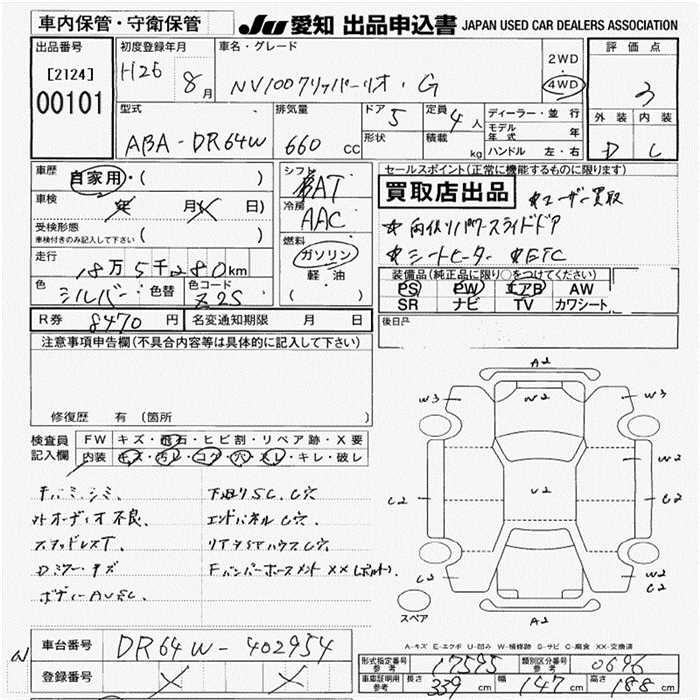 車内保管・守衛保管
JU 愛知 出品申込書 JAPAN USED CAR DEALERS ASSOCIATION
出品番号 初度登録年月 車名・グレード 2WD 評価点
[2124] H26 8月 NV100クリッパーリオ・G 4WD 3
00101
型式 排気量 ドア 5 定員 4人 ディーラー・並行 外装 内装
ABA-DR64W 660cc 形状 積載 kg モデル年式 年 D C
ハンドル 左・右
車歴 自家用・( ) シフト AT セールスポイント(正常に機能するものに限ります)
車検 年 月 日) 冷房 AAC 買取店出品 ★ユーザー買取
受検形態 車検付きのみ記入して下さい 燃料 ガソリン ★両側パワースライドドア
走行 18万5千280km 軽油 ★シートヒーター ★ETC
色 シルバー 色替 色コード Z2S ( ) 装備品(純正品に限り○をつけてください)
PS PW エアB AW
SR ナビ TV カワシート
R券 8470円 名変通知期限 月 日 後日品
注意事項申告欄(不具合内容等は具体的に記入して下さい)
修復歴 有(箇所 )
検査員記入欄 FW キズ・飛石・ヒビ割・リペア跡・X要
内装 キズ・汚レ・コゲ・穴・スレ・キレ・破レ
A2
W3 W2 W3
W2
C2 U2 C2
C2 W2
C2
A2
スペア
チバミ、シミ、 下廻りSC、C穴
社外オーディオ不良、 エンドパネルC穴
スタッドレスT、 リアタイヤハウスC穴
Dミラーキズ FバンパーホースメントXX(ボルト)、
ボディーAUEC、
A-キズ E-エクボ U-凹み W-補修跡 S-サビ C-腐食 XX-交換済
車台番号 DR64W-402954
登録番号
形式指定番号 参考 17595 類別区分番号 参考 0696
車庫証明用 参考 長さ 339cm 幅 147cm 高さ 188cm